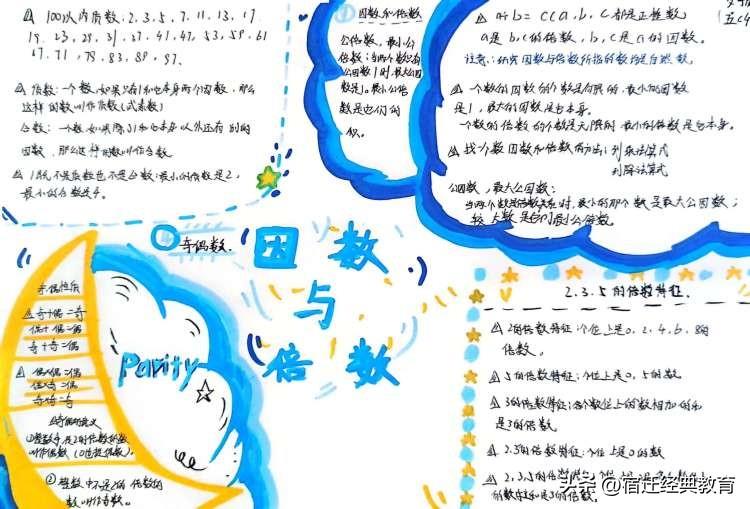 100以内质数：2、3、5、7、11、13、17、
19、23、29、31、37、41、43、47、53、59、61
67、71、79、83、89、97、
质数：一个数，如果只有1和它本身两个因数，那么
这样的数叫作质数（或素数）
合数：一个数，如果除了1和它本身以外还有别的
因数，那么这样的数叫作合数
1既不是质数也不是合数；最小的质数是2，
最小的合数是4。
因数和倍数
公倍数，最小公
倍数：当两个数只有
公因数1时，最大公因
数是1。最小公倍
数是它们的
积。
a是b、c的倍数，b、c是a的因数。
注意：研究因数与倍数所指的数均是自然数
一个数的因数的个数是有限的，最小的因数
是1，最大的因数是它本身。
一个数的倍数的个数是无限的，最小的倍数是它本身。
找一个数因数和倍数的方法：列乘法算式
列除法算式
公因数，最大公因数：
当两个数是倍数关系时，较小的那个数是最大公因数；
较大数是它们最小公倍数。
奇偶数、
因数
与
倍数
Parity
奇偶性质
奇+偶=奇
偶+偶=偶
奇+奇=偶
偶×偶=偶
偶×奇=偶
奇×奇=奇
奇偶的意义
①整数中，是2的倍数的数
叫作偶数（0也是偶数）。
②整数中不是2的倍数的
数叫作奇数。
2.3.5的倍数特征、
2的倍数特征：个位上是0、2、4、6、8的
倍数。
5的倍数特征：个位上是0、5的数
3的倍数特征：各个数位上的数相加的和
是3的倍数。
2.5的倍数特征：个位上是0的数
2、3、5的倍数
的数字和是3的倍数。
头条@宿迁经典教育